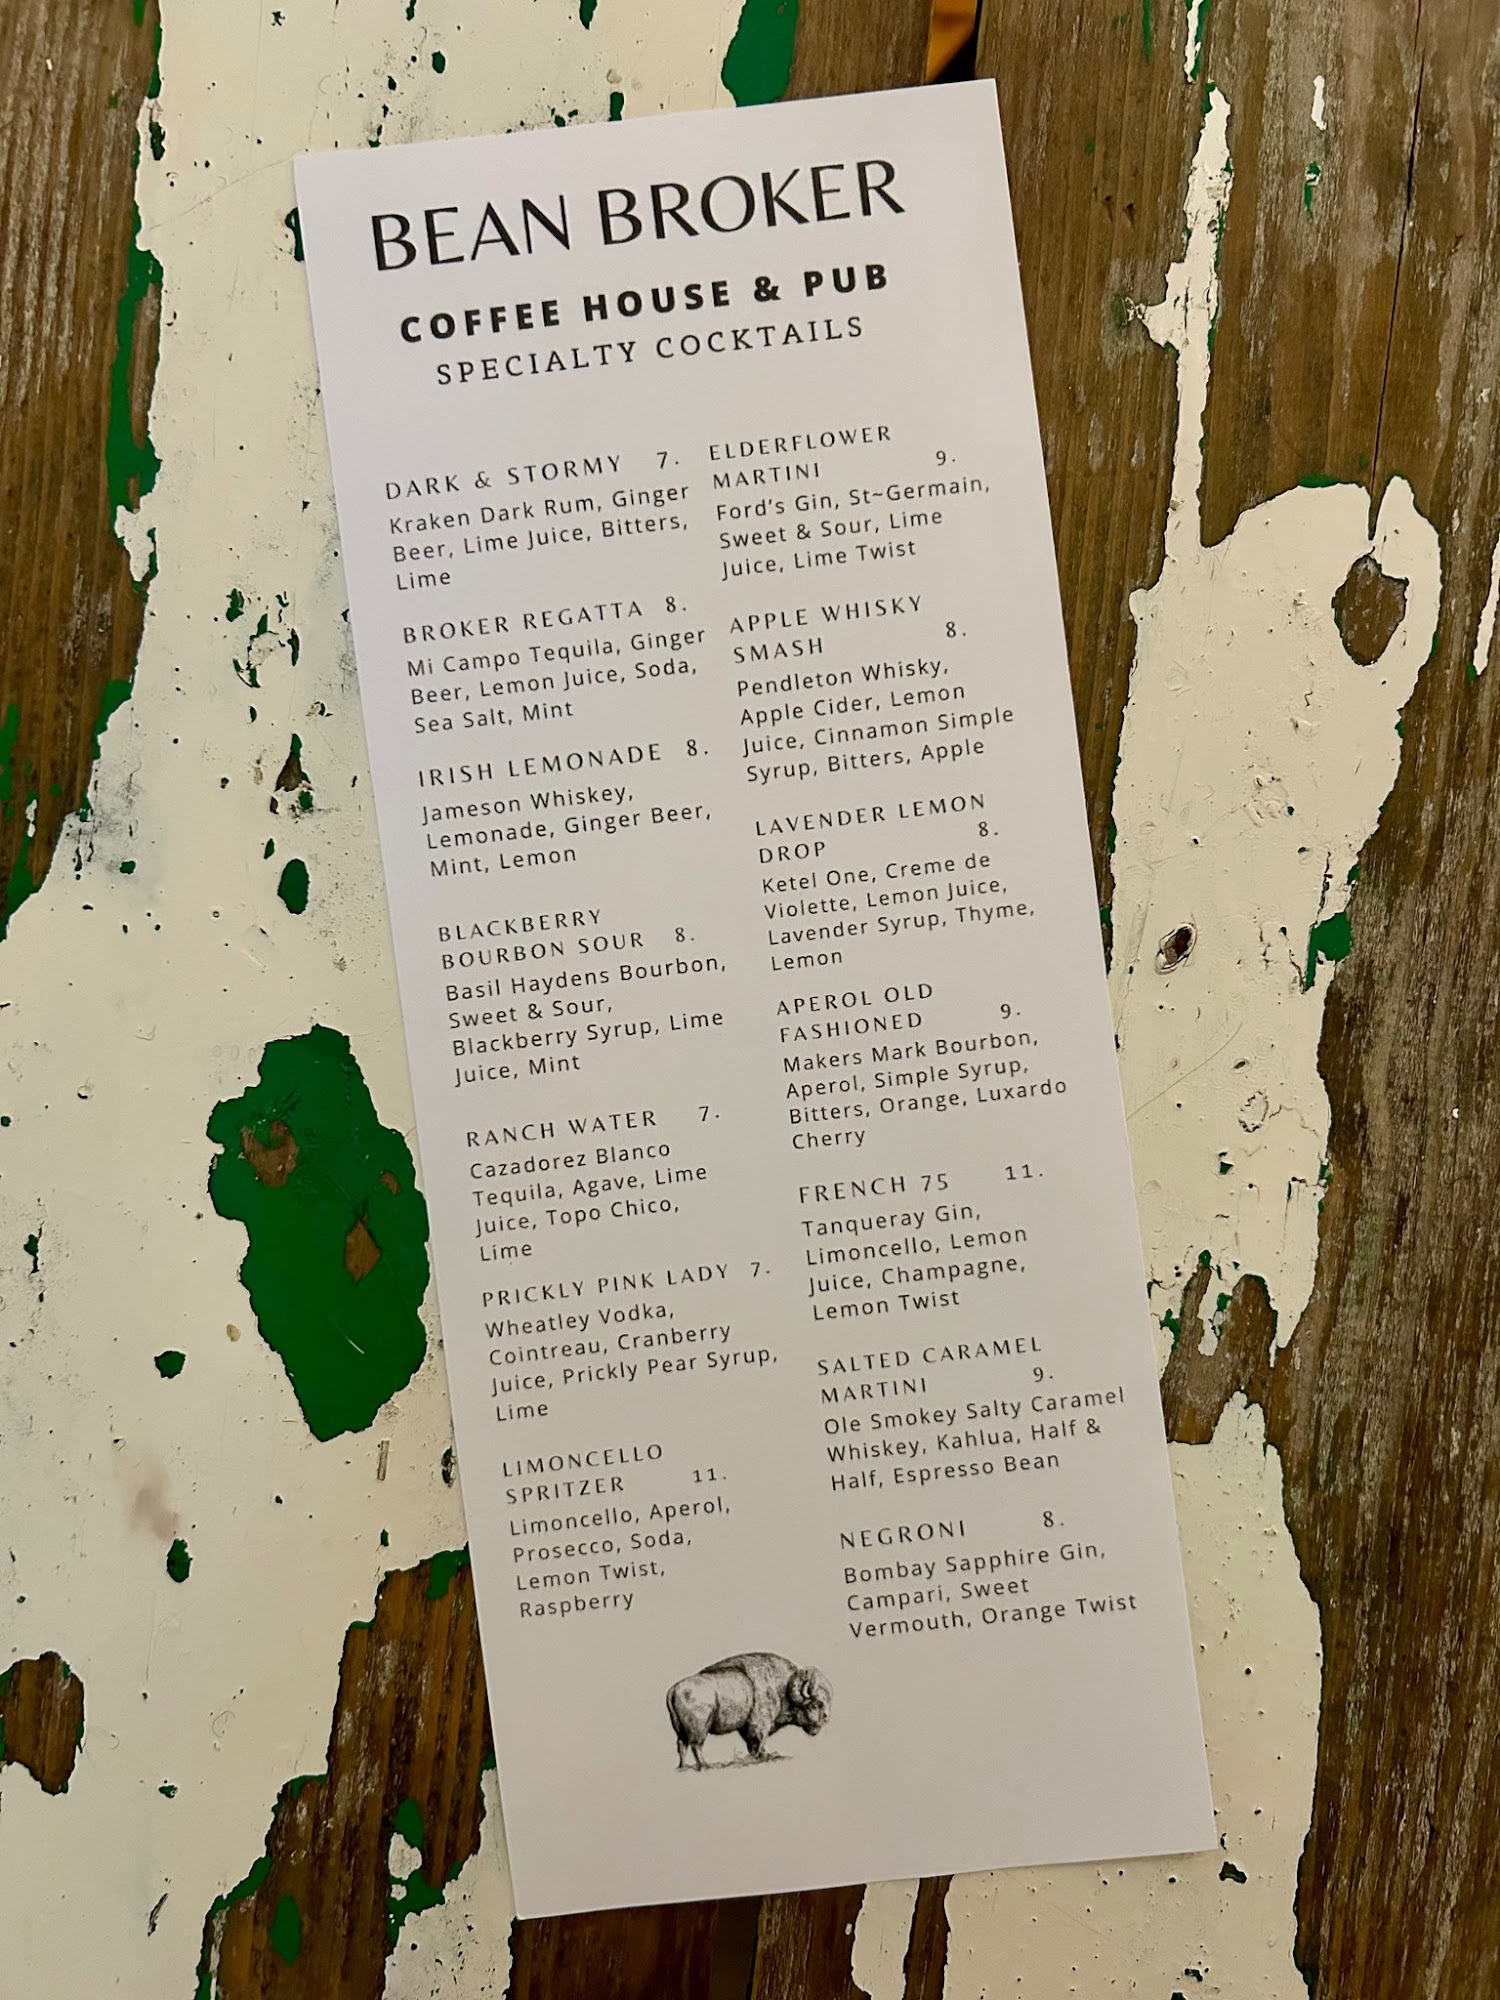 BEAN BROKER
COFFEE HOUSE & PUB
SPECIALTY COCKTAILS
DARK & STORMY 7.
Kraken Dark Rum, Ginger
Beer, Lime Juice, Bitters,
Lime
BROKER REGATTA 8.
Mi Campo Tequila, Ginger
Beer, Lemon Juice, Soda,
Sea Salt, Mint
IRISH LEMONADE 8.
Jameson Whiskey,
Lemonade, Ginger Beer,
Mint, Lemon
BLACKBERRY
BOURBON SOUR 8.
Basil Haydens Bourbon,
Sweet & Sour,
Blackberry Syrup, Lime
Juice, Mint
RANCH WATER 7.
Cazadorez Blanco
Tequila, Agave, Lime
Juice, Topo Chico,
Lime
PRICKLY PINK LADY 7.
Wheatley Vodka,
Cointreau, Cranberry
Juice, Prickly Pear Syrup,
Lime
LIMONCELLO
SPRITZER 11.
Limoncello, Aperol,
Prosecco, Soda,
Lemon Twist,
Raspberry
ELDERFLOWER
MARTINI 9.
Ford's Gin, St~Germain,
Sweet & Sour, Lime
Juice, Lime Twist
APPLE WHISKY
SMASH 8.
Pendleton Whisky,
Apple Cider, Lemon
Juice, Cinnamon Simple
Syrup, Bitters, Apple
LAVENDER LEMON
DROP 8.
Ketel One, Creme de
Violette, Lemon Juice,
Lavender Syrup, Thyme,
Lemon
APEROL OLD
FASHIONED 9.
Makers Mark Bourbon,
Aperol, Simple Syrup,
Bitters, Orange, Luxardo
Cherry
FRENCH 75 11.
Tanqueray Gin,
Limoncello, Lemon
Juice, Champagne,
Lemon Twist
SALTED CARAMEL
MARTINI 9.
Ole Smokey Salty Caramel
Whiskey, Kahlua, Half &
Half, Espresso Bean
NEGRONI 8.
Bombay Sapphire Gin,
Campari, Sweet
Vermouth, Orange Twist